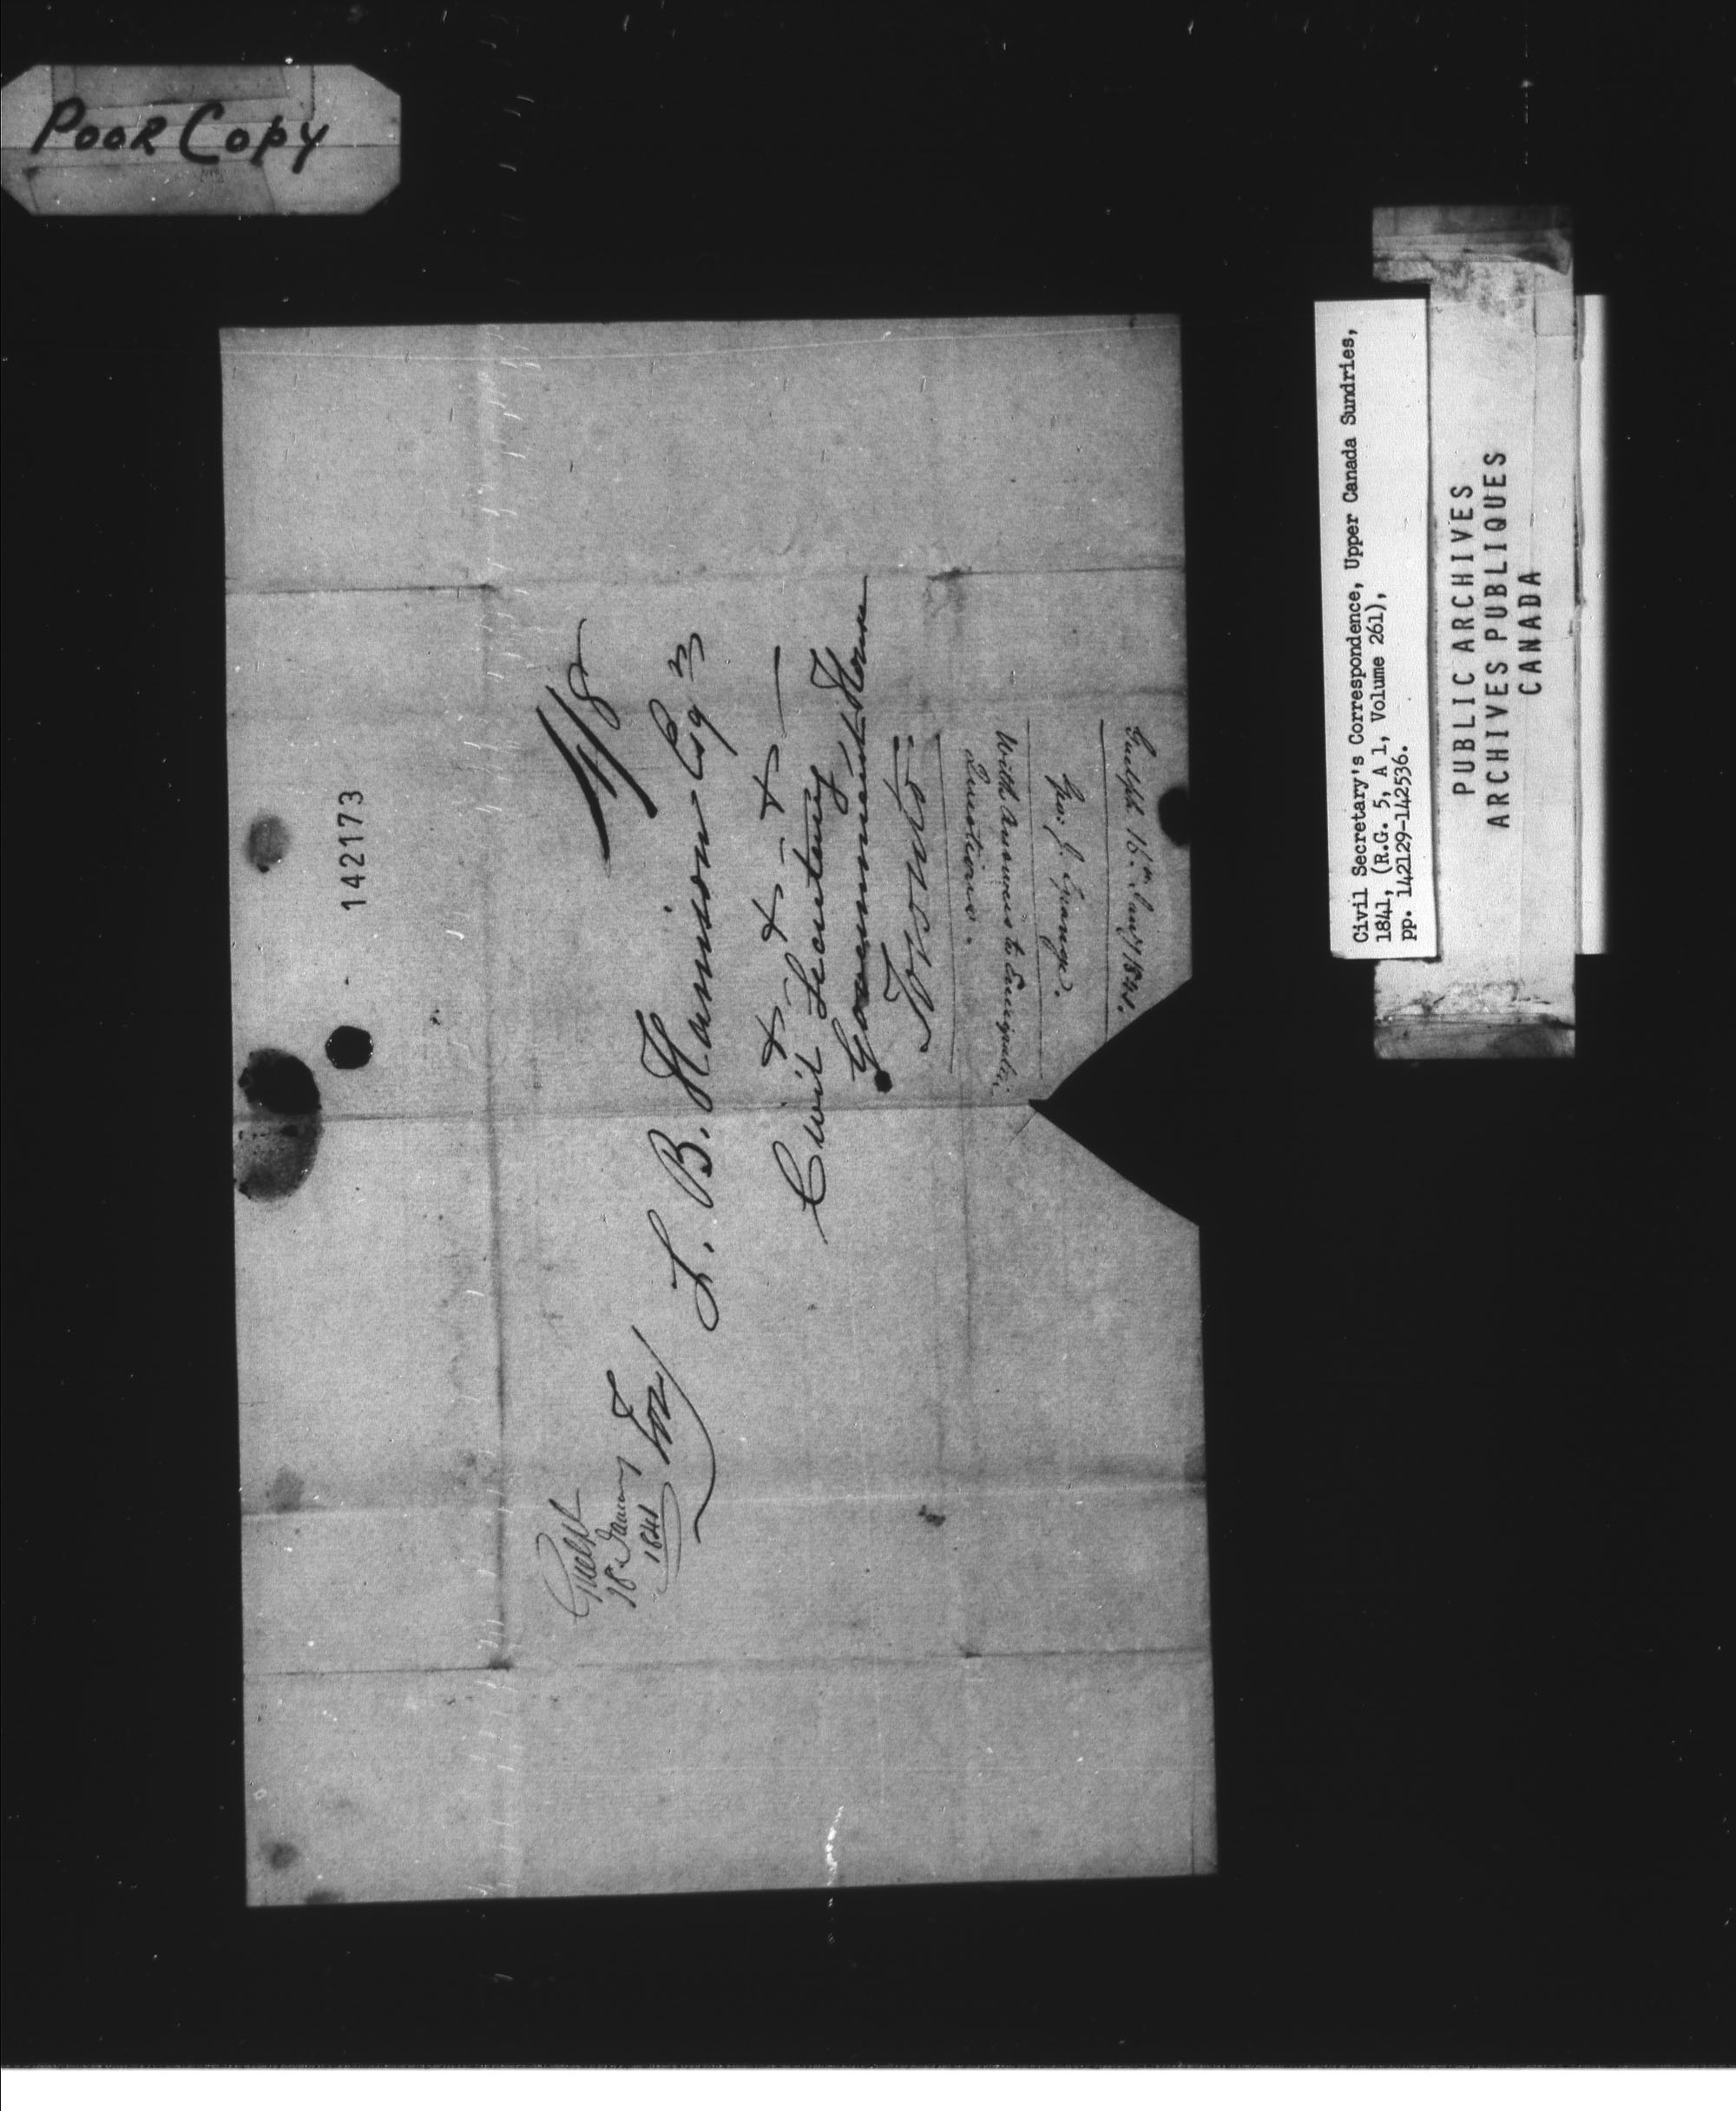 Poor Copy
142173
Guelph
18 January
1841
For/
S. B. Harrison Esqr
& - & - & -
Civil Secretary
Government House
Toronto
Guelph 15th Jany 1841.
Geo: J. Grange.
With Answers to Emigration
Questions.
Civil Secretary's Correspondence, Upper Canada Sundries,
1841, (R.G. 5, A 1, Volume 261),
pp. 142129-142536.
PUBLIC ARCHIVES
ARCHIVES PUBLIQUES
CANADA